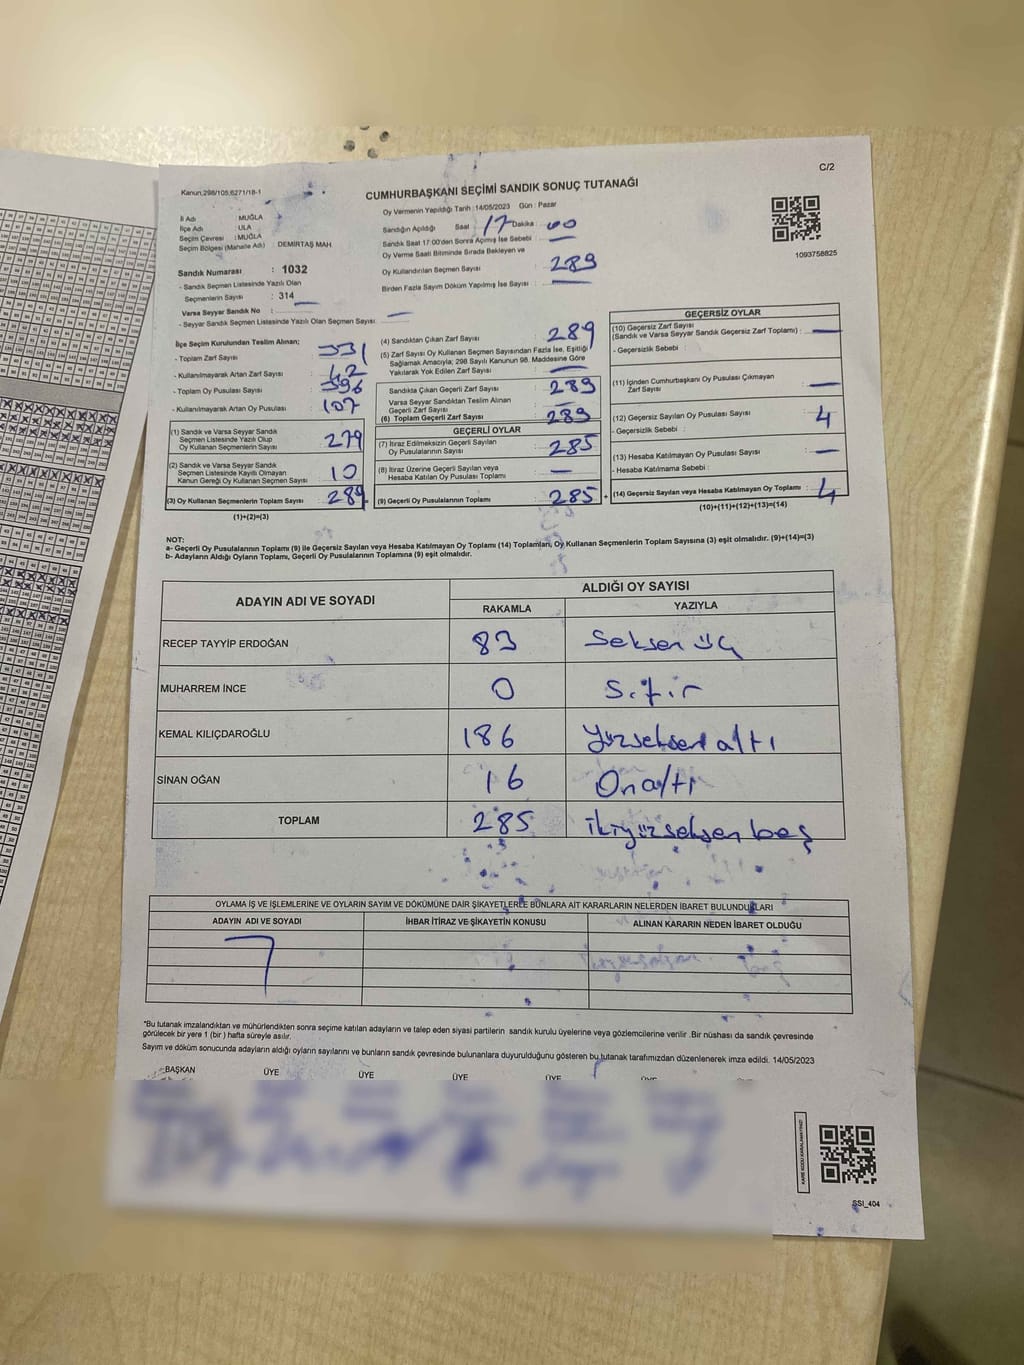 C/2
Kanun,298/105,6271/18-1
CUMHURBAŞKANI SEÇİMİ SANDIK SONUÇ TUTANAĞI
İl Adı : MUĞLA
İlçe Adı : ULA
Seçim Çevresi : MUĞLA
Seçim Bölgesi (Mahalle Adı) : DEMİRTAŞ MAH.
Sandık Numarası : 1032
- Sandık Seçmen Listesinde Yazılı Olan
Seçmenlerin Sayısı : 314
Varsa Seyyar Sandık No :
- Seyyar Sandık Seçmen Listesinde Yazılı Olan Seçmen Sayısı:
Oy Vermenin Yapıldığı Tarih : 14/05/2023 Gün : Pazar
Sandığın Açıldığı Saat 17 Dakika : 00
Sandık Saat 17:00'den Sonra Açılmış İse Sebebi :
Oy Verme Saati Bitiminde Sırada Bekleyen ve
Oy Kullandırılan Seçmen Sayısı : 289
Birden Fazla Sayım Döküm Yapılmış İse Sayısı :
1093758825
İlçe Seçim Kurulundan Teslim Alınan;
- Toplam Zarf Sayısı : 331
- Kullanılmayarak Artan Zarf Sayısı : 42
- Toplam Oy Pusulası Sayısı : 396
- Kullanılmayarak Artan Oy Pusulası : 107
(1) Sandık ve Varsa Seyyar Sandık
Seçmen Listesinde Yazılı Olup
Oy Kullanan Seçmenlerin Sayısı : 279
(2) Sandık ve Varsa Seyyar Sandık
Seçmen Listesinde Kayıtlı Olmayan
Kanun Gereği Oy Kullanan Seçmen Sayısı : 10
(3) Oy Kullanan Seçmenlerin Toplam Sayısı : 289
(1)+(2)=(3)
(4) Sandıktan Çıkan Zarf Sayısı : 289
(5) Zarf Sayısı Oy Kullanan Seçmen Sayısından Fazla İse, Eşitliği
Sağlamak Amacıyla; 298 Sayılı Kanunun 98. Maddesine Göre
Yakılarak Yok Edilen Zarf Sayısı :
Sandıkta Çıkan Geçerli Zarf Sayısı : 289
Varsa Seyyar Sandıktan Teslim Alınan
Geçerli Zarf Sayısı :
(6) Toplam Geçerli Zarf Sayısı : 289
GEÇERLİ OYLAR
(7) İtiraz Edilmeksizin Geçerli Sayılan
Oy Pusulalarının Sayısı : 285
(8) İtiraz Üzerine Geçerli Sayılan veya
Hesaba Katılan Oy Pusulası Toplamı :
(9) Geçerli Oy Pusulalarının Toplamı : 285
GEÇERSİZ OYLAR
(10) Geçersiz Zarf Sayısı
(Sandık ve Varsa Seyyar Sandık Geçersiz Zarf Toplamı) :
- Geçersizlik Sebebi :
(11) İçinden Cumhurbaşkanı Oy Pusulası Çıkmayan
Zarf Sayısı :
(12) Geçersiz Sayılan Oy Pusulası Sayısı : 4
- Geçersizlik Sebebi :
(13) Hesaba Katılmayan Oy Pusulası Sayısı :
- Hesaba Katılmama Sebebi :
(14) Geçersiz Sayılan veya Hesaba Katılmayan Oy Toplamı : 4
(10)+(11)+(12)+(13)=(14)
NOT:
a- Geçerli Oy Pusulalarının Toplamı (9) ile Geçersiz Sayılan veya Hesaba Katılmayan Oy Toplamı (14) Toplamları, Oy Kullanan Seçmenlerin Toplam Sayısına (3) eşit olmalıdır. (9)+(14)=(3)
b- Adayların Aldığı Oyların Toplamı, Geçerli Oy Pusulalarının Toplamına (9) eşit olmalıdır.
ADAYIN ADI VE SOYADI
ALDIĞI OY SAYISI
RAKAMLA YAZIYLA
RECEP TAYYİP ERDOĞAN 83 Seksen üç
MUHARREM İNCE 0 Sıfır
KEMAL KILIÇDAROĞLU 186 Yüzseksen altı
SİNAN OĞAN 16 Onaltı
TOPLAM 285 ikiyüzseksen beş
OYLAMA İŞ VE İŞLEMLERİNE VE OYLARIN SAYIM VE DÖKÜMÜNE DAİR ŞİKAYETLERLE BUNLARA AİT KARARLARIN NELERDEN İBARET BULUNDUKLARI
ADAYIN ADI VE SOYADI İHBAR İTİRAZ VE ŞİKAYETİN KONUSU ALINAN KARARIN NEDEN İBARET OLDUĞU
"Bu tutanak imzalandıktan ve mühürlendikten sonra seçime katılan adayların ve talep eden siyasi partilerin sandık kurulu üyelerine veya gözlemcilerine verilir .Bir nüshası da sandık çevresinde
görülecek bir yere 1 (bir ) hafta süreyle asılır.
Sayım ve döküm sonucunda adayların aldığı oyların sayılarını ve bunların sandık çevresinde bulunanlara duyurulduğunu gösteren bu tutanak tarafımızdan düzenlenerek imza edildi. 14/05/2023
BAŞKAN ÜYE ÜYE ÜYE ÜYE ÜYE
KARE KODU KARALAMAYINIZ!
SSI_404